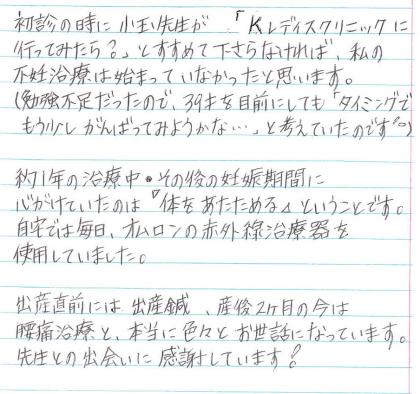 初診の時に小玉先生が、「Kレディスクリニックに
行ってみたら？」とすすめて下さらなければ、私の
不妊治療は始まっていなかったと思います。
(勉強不足だったので、39才を目前にしても「タイミングで
もう少しがんばってみようかな…」と考えていたのです^^;)
約1年の治療中・その後の妊娠期間に
心がけていたのは『体をあたためる』ということです。
自宅では毎日、オムロンの赤外線治療器を
使用していました。
出産直前には出産鍼、産後2ヶ月の今は
腰痛治療と、本当に色々とお世話になっています。
先生との出会いに感謝しています！